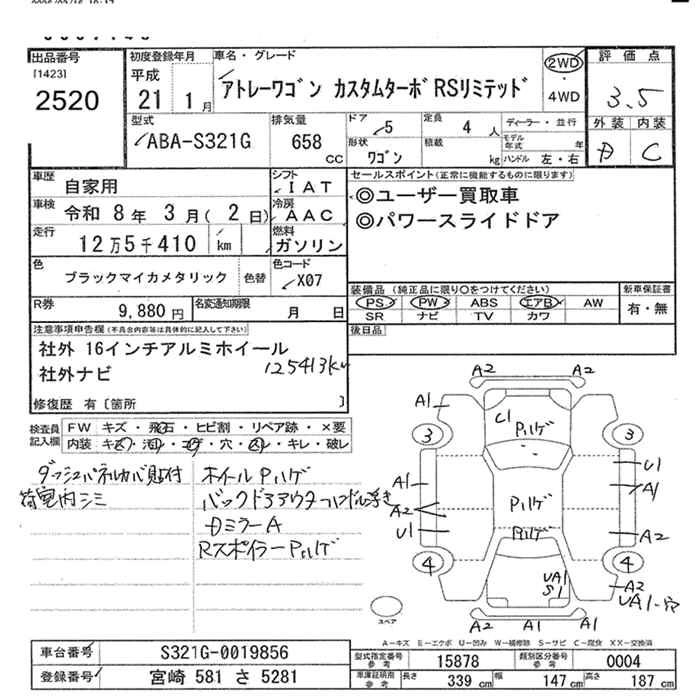 出品番号
[1423]
2520
初度登録年月
平成
21年 1月
車名・グレード
アトレーワゴン カスタムターボRSリミテッド
2WD
・
4WD
評価点
3.5
外装 内装
C
型式
ABA-S321G
排気量
658
CC
ドア
5
定員
4人
形状
ワゴン
積載
kg
ディーラー・並行
モデル年式 年
ハンドル 左・右
車歴
自家用
シフト
IAT
車検
令和 8年 3月(2日)
冷房
AAC
走行
12万5千410
km
燃料
ガソリン
色
ブラックマイカメタリック
色替
色コード
X07
R券
9,880円
名変通知期限
月 日
セールスポイント(正常に機能するものに限ります)
◎ユーザー買取車
◎パワースライドドア
装備品 (純正品に限り○をつけてください)
PS PW ABS エアB AW
SR ナビ TV カワ
新車保証書
有・無
後日品
注意事項申告欄(不具合内容等は具体的に記入して下さい)
社外 16インチアルミホイール
社外ナビ
125413km
修復歴 有〔箇所 〕
検査員
記入欄
FW キズ・飛石・ヒビ割・リペア跡・×要
内装 キズ・汚レ・コゲ・穴・スレ・キレ・破レ
ダッシュパネルカバー貼付
荷室内シミ
ホイールPハゲ
バックドアアウターハンドル浮き
DミラーA
RスポイラーPハゲ
A2 A2
A1
C1
Pハゲ
3 3
A1
U1
A1
A2
Pハゲ
U1
Pハゲ
A2
4 4
UA1
S1
A2
UA1-穴
A2 A1 A1
スペア
A-キズ E-エクボ U-凹み W-補修跡 S-サビ C-腐食 XX-交換済
車台番号
S321G-0019856
登録番号
宮崎 581 さ 5281
型式指定番号
参考
15878
類別区分番号
参考
0004
車庫証明用
参考
長さ 339cm 幅 147cm 高さ 187cm